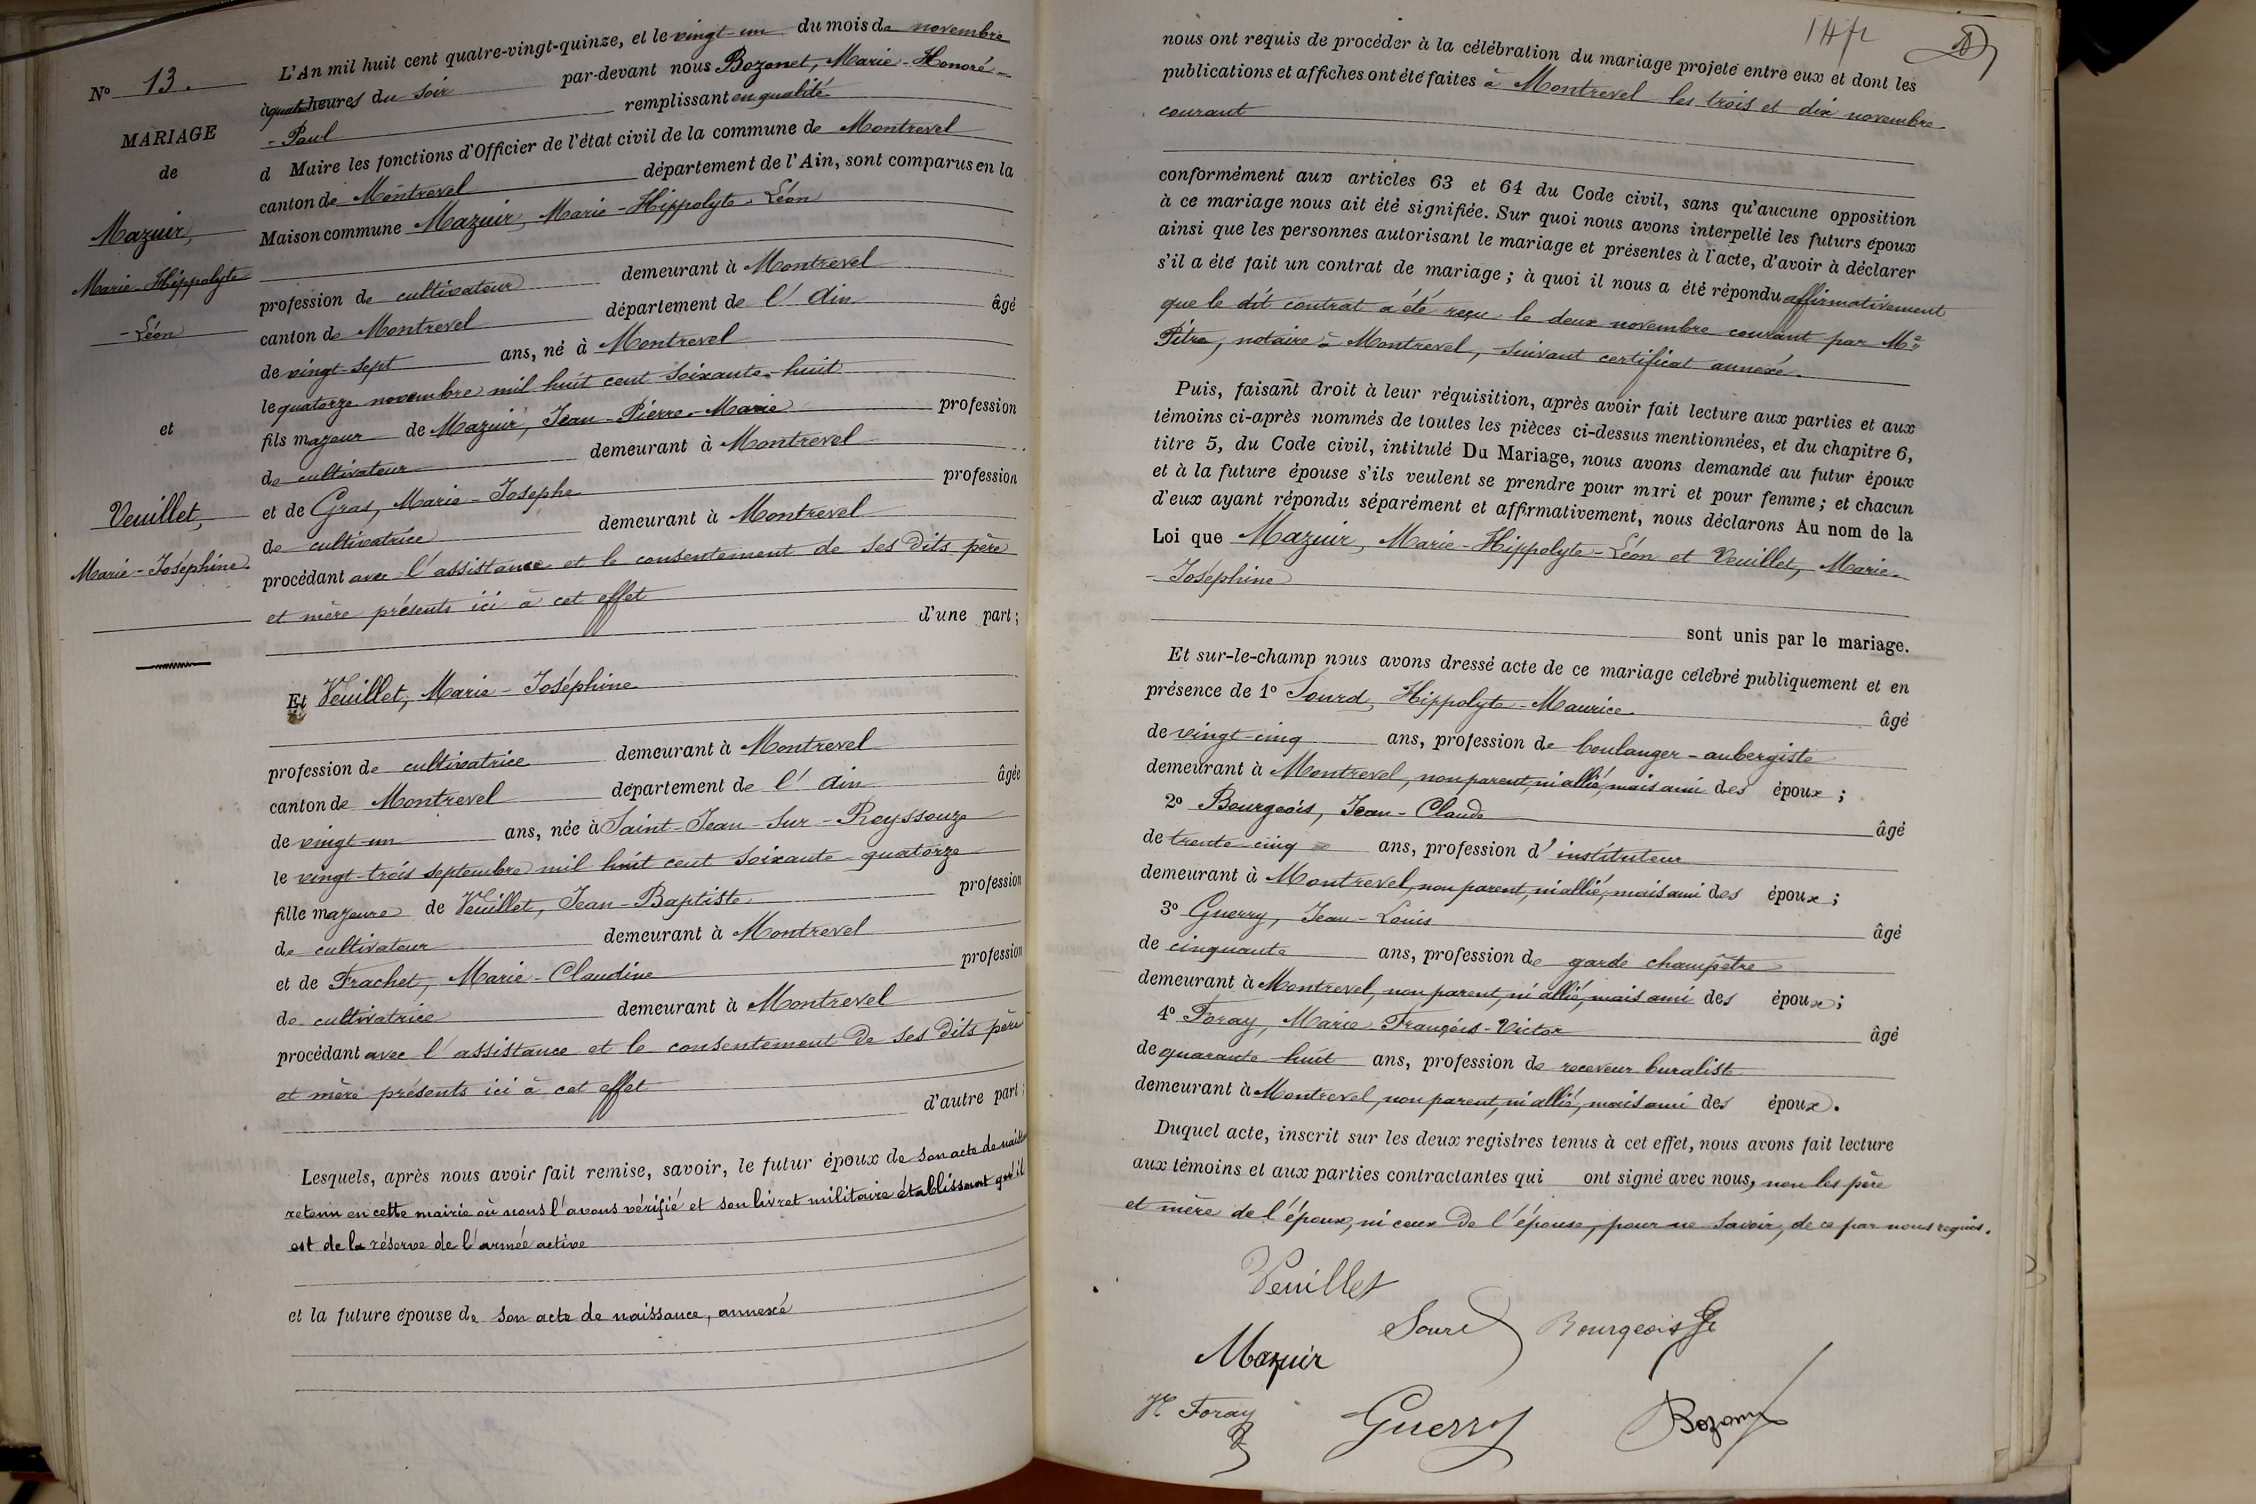 N° 13.
MARIAGE
de
Mazuir,
Marie-Hippolyte
-Léon
et
Veuillet,
Marie-Joséphine.
L'An mil huit cent quatre-vingt-quinze, et le vingt-un du mois de novembre
à quatre heures du soir par-devant nous Bozonet, Marie-Honoré-
-Paul remplissant en qualité
d Maire les fonctions d'Officier de l'état civil de la commune de Montrevel
canton de Montrevel département de l'Ain, sont comparus en la
Maison commune Mazuir, Marie-Hippolyte-Léon
profession de cultivateur demeurant à Montrevel
canton de Montrevel département de l'Ain âgé
de vingt-sept ans, né à Montrevel
le quatorze novembre mil huit cent soixante-huit
fils majeur de Mazuir, Jean-Pierre-Marie profession
de cultivateur demeurant à Montrevel
et de Gras, Marie-Josephe profession
de cultivatrice demeurant à Montrevel
procédant avec l'assistance et le consentement de ses dits père
et mère présents ici à cet effet
d'une part;
Et Veuillet, Marie-Joséphine
profession de cultivatrice demeurant à Montrevel
canton de Montrevel département de l'Ain âgée
de vingt-un ans, née à Saint-Jean-sur-Reyssouze
le vingt-trois septembre mil huit cent soixante-quatorze
fille majeure de Veuillet, Jean-Baptiste profession
de cultivateur demeurant à Montrevel
et de Frachet, Marie-Claudine profession
de cultivatrice demeurant à Montrevel
procédant avec l'assistance et le consentement de ses dits père
et mère présents ici à cet effet
d'autre part;
Lesquels, après nous avoir fait remise, savoir, le futur époux de son acte de naiss
retenu en cette mairie où nous l'avons vérifié et son livret militaire établissant qu'il
est de la réserve de l'armée active
et la future épouse de son acte de naissance, annexé
nous ont requis de procéder à la célébration du mariage projeté entre eux et dont les
publications et affiches ont été faites à Montrevel les trois et dix novembre
courant
conformément aux articles 63 et 64 du Code civil, sans qu'aucune opposition
à ce mariage nous ait été signifiée. Sur quoi nous avons interpellé les futurs époux
ainsi que les personnes autorisant le mariage et présentes à l'acte, d'avoir à déclarer
s'il a été fait un contrat de mariage; à quoi il nous a été répondu affirmativement
que le dit contrat a été reçu le deux novembre courant par Me
Pitre, notaire à Montrevel, suivant certificat annexé.
Puis, faisant droit à leur réquisition, après avoir fait lecture aux parties et aux
témoins ci-après nommés de toutes les pièces ci-dessus mentionnées, et du chapitre 6,
titre 5, du Code civil, intitulé Du Mariage, nous avons demandé au futur époux
et à la future épouse s'ils veulent se prendre pour mari et pour femme; et chacun
d'eux ayant répondu séparément et affirmativement, nous déclarons Au nom de la
Loi que Mazuir, Marie-Hippolyte-Léon et Veuillet, Marie-
-Joséphine
sont unis par le mariage.
Et sur-le-champ nous avons dressé acte de ce mariage célébré publiquement et en
présence de 1° Sourd, Hippolyte-Maurice âgé
de vingt-cinq ans, profession de boulanger-aubergiste
demeurant à Montrevel, non parent, ni allié, mais ami des époux;
2° Bourgeois, Jean-Claude âgé
de trente-cinq ans, profession d'instituteur
demeurant à Montrevel, non parent, ni allié, mais ami des époux;
3° Guerry, Jean-Louis âgé
de cinquante ans, profession de garde champêtre
demeurant à Montrevel, non parent, ni allié, mais ami des époux;
4° Foray, Marie François-Victor âgé
de quarante-huit ans, profession de receveur buraliste
demeurant à Montrevel, non parent, ni allié, mais ami des époux.
Duquel acte, inscrit sur les deux registres tenus à cet effet, nous avons fait lecture
aux témoins et aux parties contractantes qui ont signé avec nous, non les père
et mère de l'époux, ni ceux de l'épouse, pour ne savoir, de ce par nous requis.
Veuillet
Sourd Bourgeois
Mazuir
V. Foray Guerry Bozonet